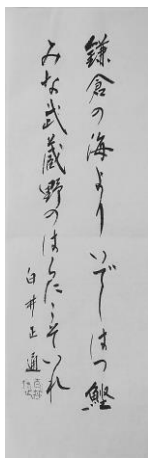 鎌倉の海よりいでしはつ鰹
みな武蔵野のはらにこそいれ
白井正通